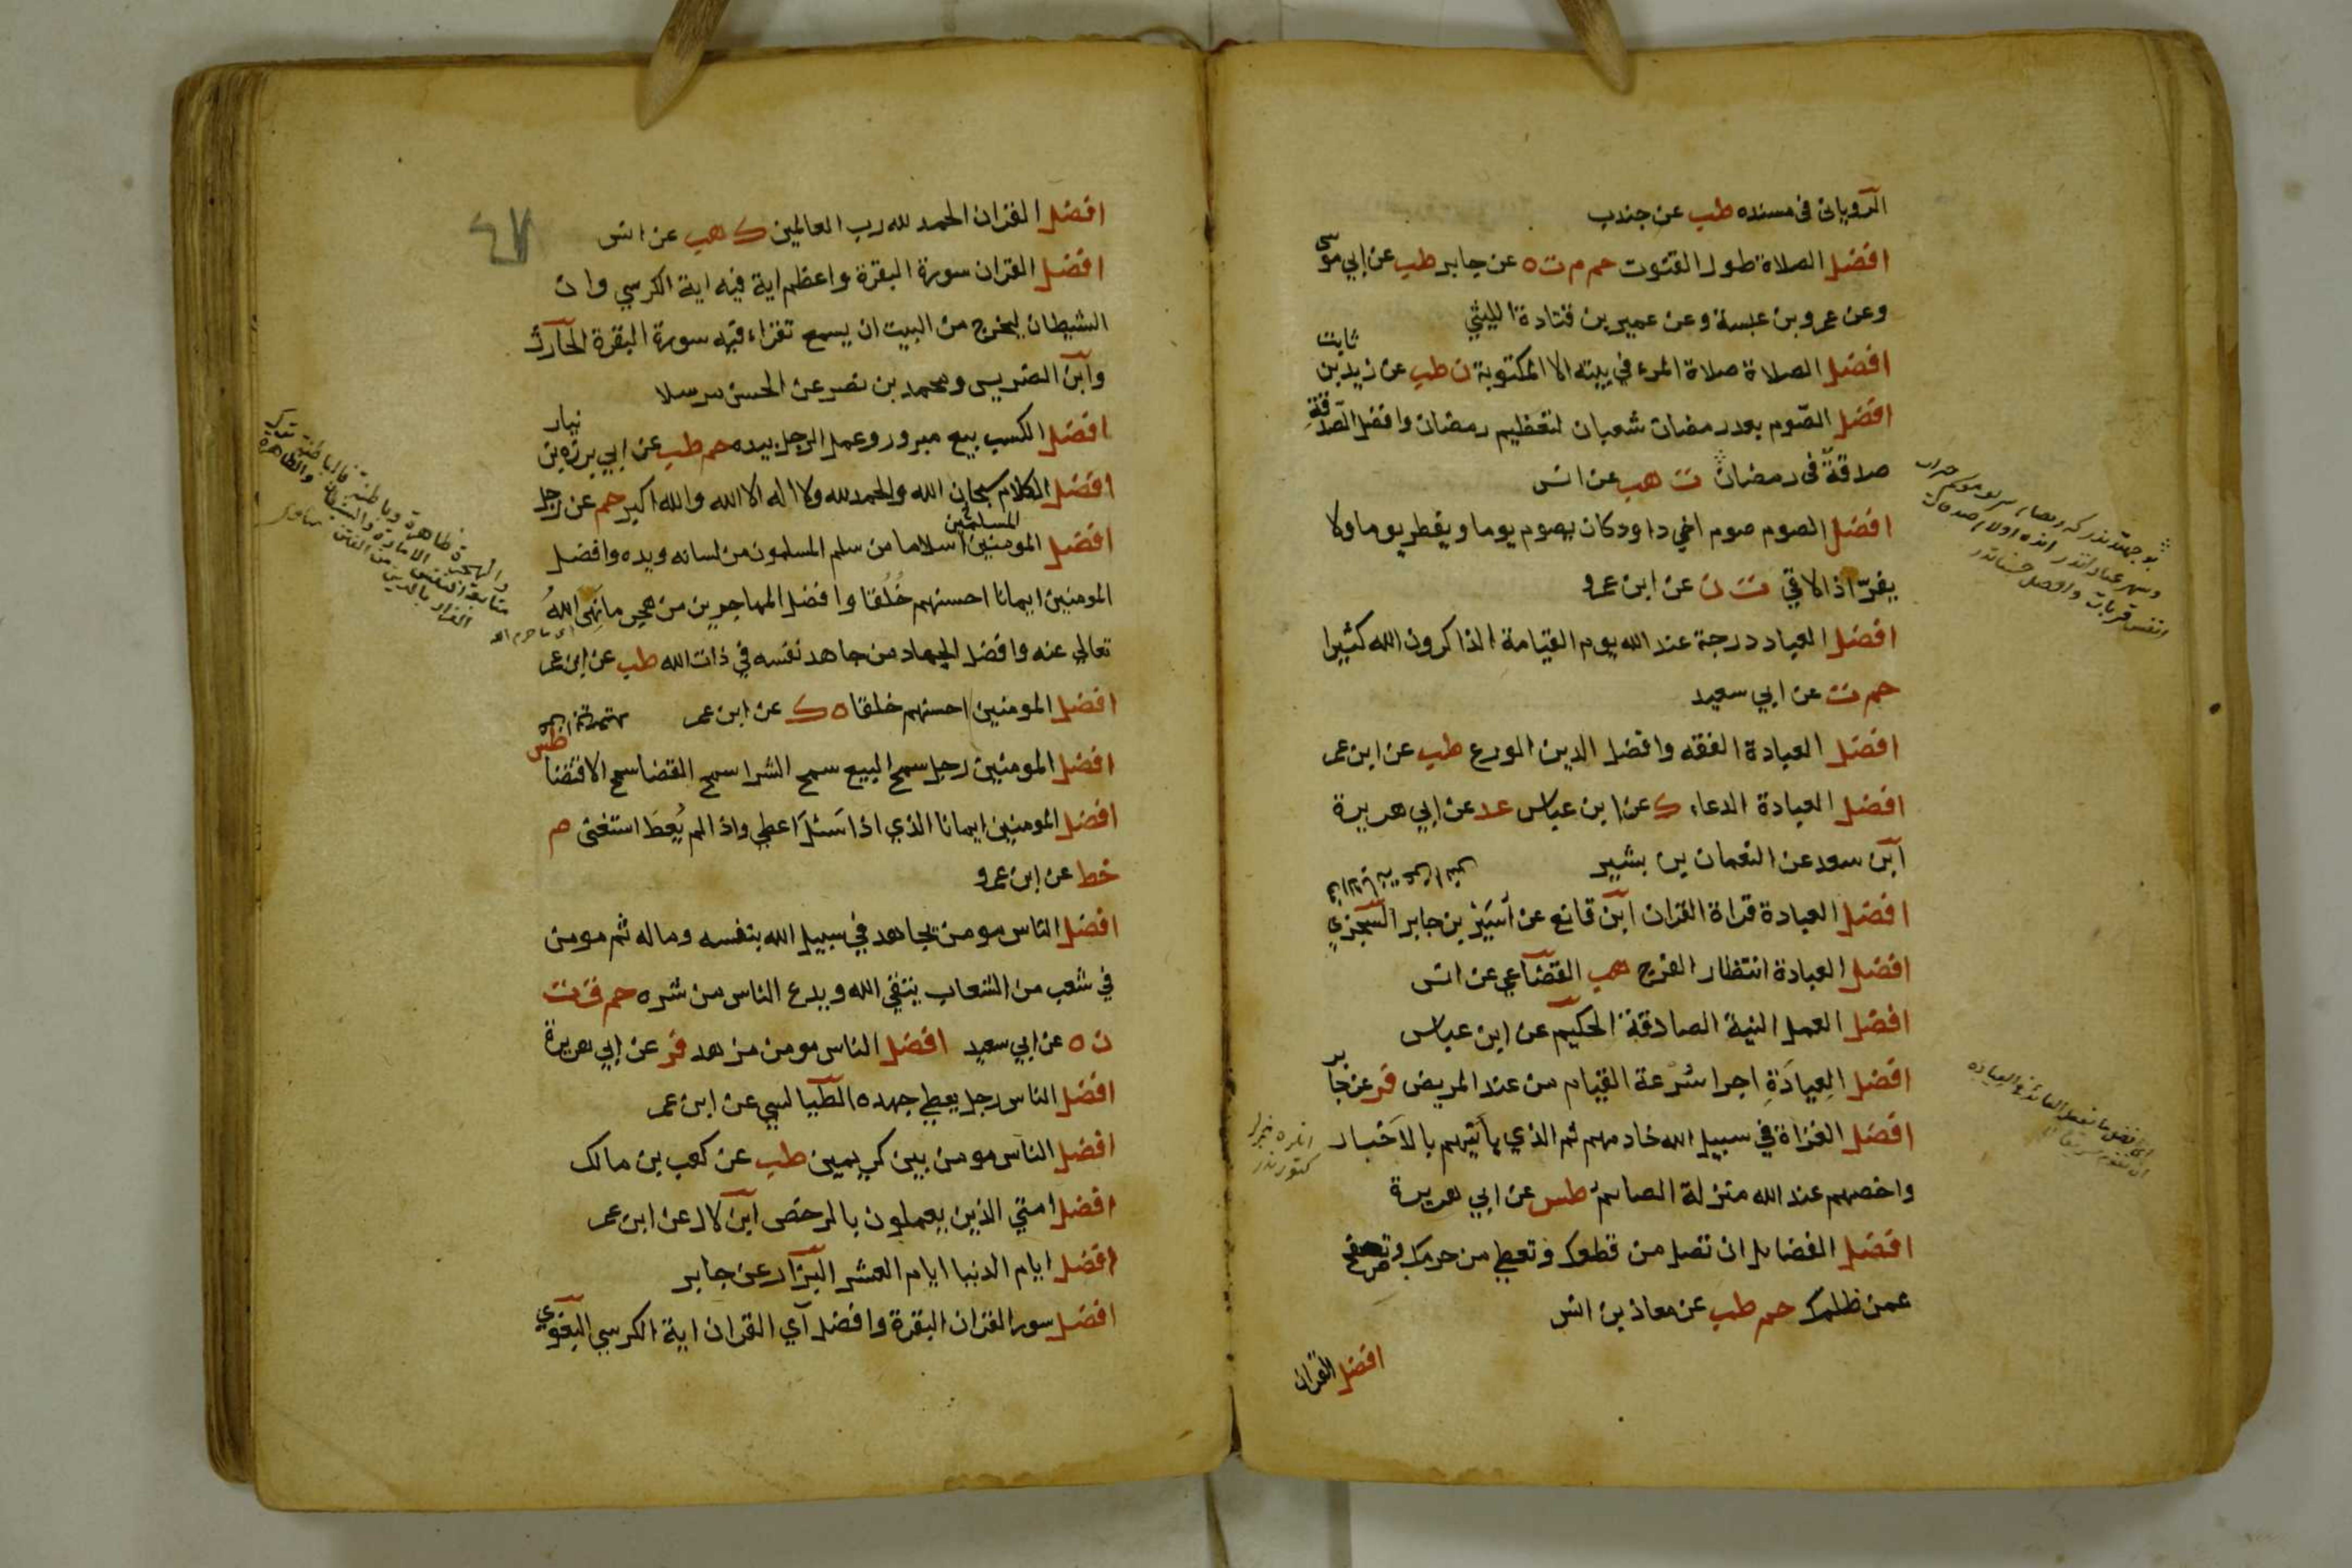 الرويانى فى مسنده طب عن جندب
افضل الصلاة طول القنوت حم م ت ه عن جابر طب عن ابي موسى
وعن عمرو بن عبسة وعن عمير بن قتادة الليثي
افضل الصلاة صلاة المرء في بيته الا المكتوبة ن طب عن زيد بن ثابت
افضل الصوم بعد رمضان شعبان لتعظيم رمضان وافضل الصدقة
صدقة فى رمضان ت هب عن انس
افضل الصوم صوم اخي داود كان يصوم يوما ويفطر يوما ولا
يفرّ اذا لاقي ت ن عن ابن عمرو
افضل العباد درجة عند الله يوم القيامة الذاكرون الله كثيرا
حم ت عن ابي سعيد
افضل العبادة الفقه وافضل الدين الورع طب عن ابن عمر
افضل العبادة الدعاء ك عن ابن عباس عد عن ابي هريرة
ابن سعد عن النعمان بن بشير
افضل العبادة قراة القران ابن قانع عن اسير بن جابر السجزي
افضل العبادة انتظار الفرج هب القضاعي عن انس
افضل العمل النية الصادقة الحكيم عن ابن عباس
افضل العِيادَةِ اجرا سُرْعة القيام من عند المريض فر عن جابر
افضل الغزاة في سبيل الله خادمهم ثم الذي يأتيهم بالاَخبار
واخصهم عند الله منزلة الصائم طس عن ابي هريرة
افضل الفضائل ان تصل من قطعك وتعطي من حرمك وتصفح
عمن ظلمك حم طب عن معاذ بن انس
افضل القران
٤٧
افضل القران الحمد لله رب العالمين ك هب عن انس
افضل القران سورة البقرة واعظم اية فيه اية الكرسي وان
الشيطان ليخرج من البيت ان يسمع تقراء فيه سورة البقرة الحارث
وابن الضريس ومحمد بن نصر عن الحسن مرسلا
افضل الكسب بيع مبرور وعمل الرجل بيده حم طب عن ابي بردة بن نيار
افضل الكلام سبحان الله والحمد لله ولا اله الا الله والله اكبر حم عن رجل
افضل المومنين اسلاما من سلم المسلمون من لسانه ويده وافضل
المسلمين
المومنين ايمانا احسنهم خُلُقا وافضل المهاجرين من هجر ما نَهَى اللهُ
تعالي عنه وافضل الجهاد من جاهد نفسه في ذات الله طب عن ابن عمر
افضل المومنين احسنهم خلقا ه ك عن ابن عمر
افضل المومنين رجل سمح البيع سمح الشرا سمح القضا سمح الاقتضا طس
افضل المومنين ايمانا الذي اذا سَئلَ اعطي واذا لم يُعطَ استغنى ه
خط عن ابن عمرو
افضل الناس مومن يجاهد في سبيل الله بنفسه وماله ثم مومن
في شعب من الشعاب يتقي الله ويدع الناس من شره حم ق ت
ن ه عن ابي سعيد افضل الناس مومن مزهد فر عن ابي هريرة
افضل الناس رجل يعطي جهده الطيالسي عن ابن عمر
افضل الناس مومن بين كريمين طب عن كعب بن مالك
افضل امتي الذين يعملون بالرخص ابن لال عن ابن عمر
افضل ايام الدنيا ايام العشر البزار عن جابر
افضل سور القران البقرة وافضل آي القران اية الكرسي البغوي